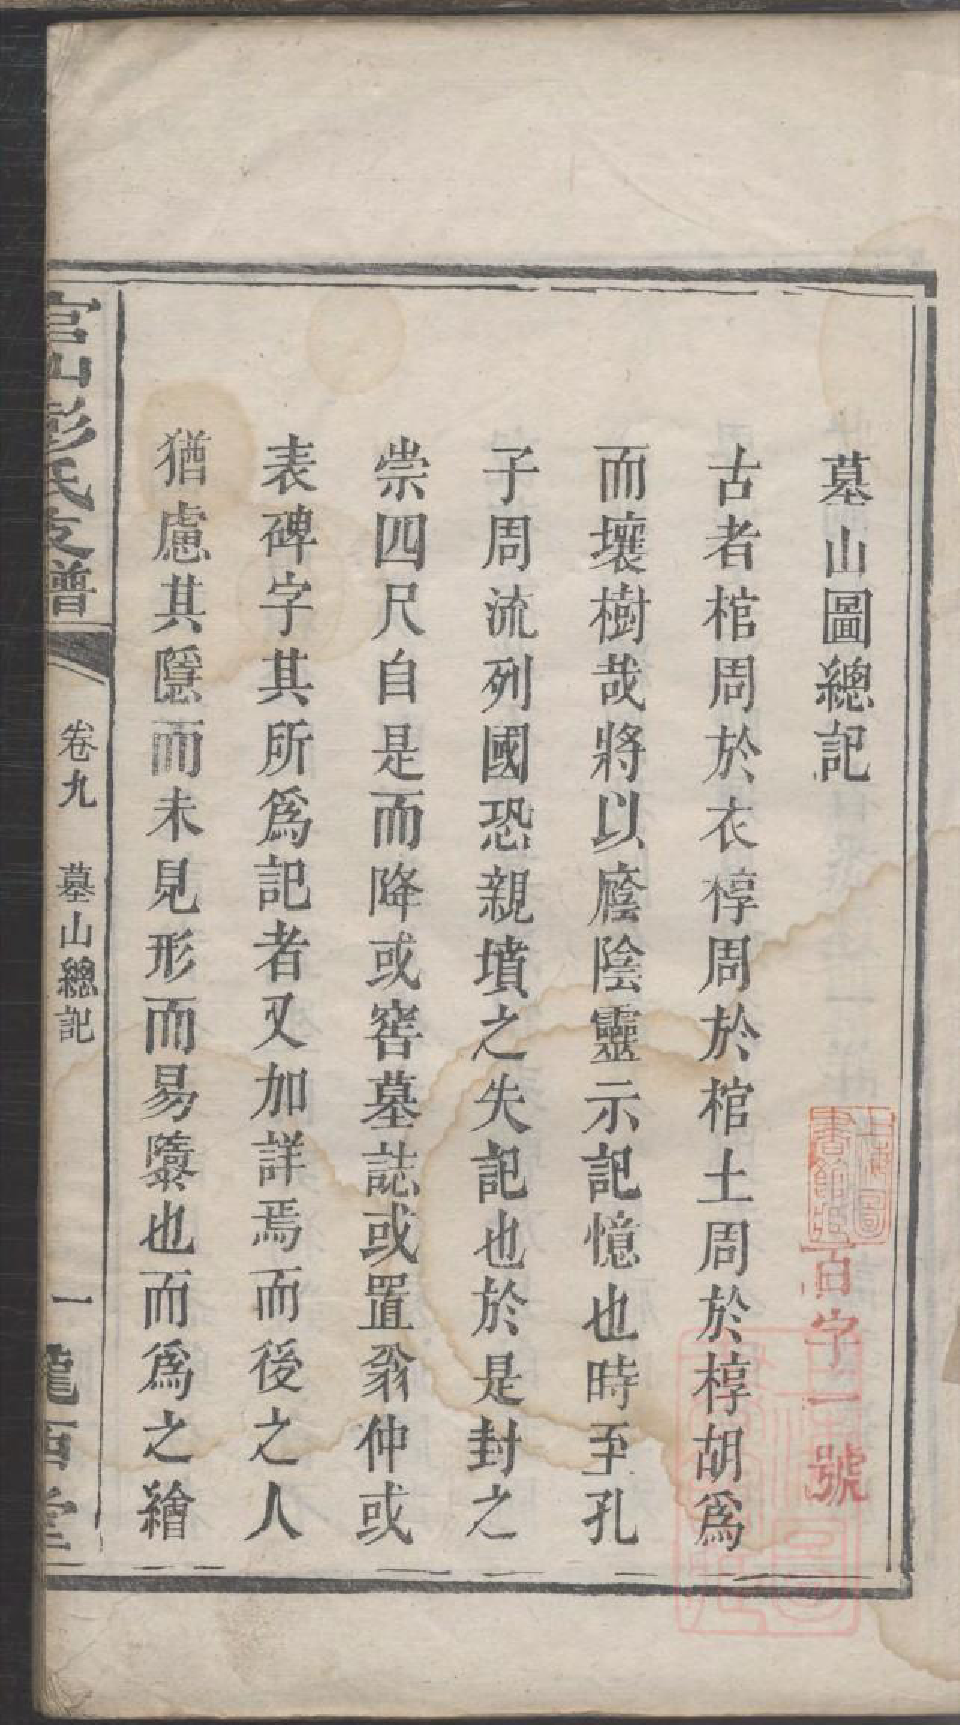 墓山圖總記
古者棺周於衣椁周於棺土周於椁胡爲
而壤樹哉將以廕陰靈示記憶也時至孔
子周流列國恐親墳之失記也於是封之
崇四尺自是而降或窖墓誌或置翁仲或
表碑字其所爲記者又加詳焉而後之人
猶慮其隱而未見形而易隳也而爲之繪
官山彭氏支譜
卷九 墓山總記
一 隴西堂
上海圖書館藏
百字一號